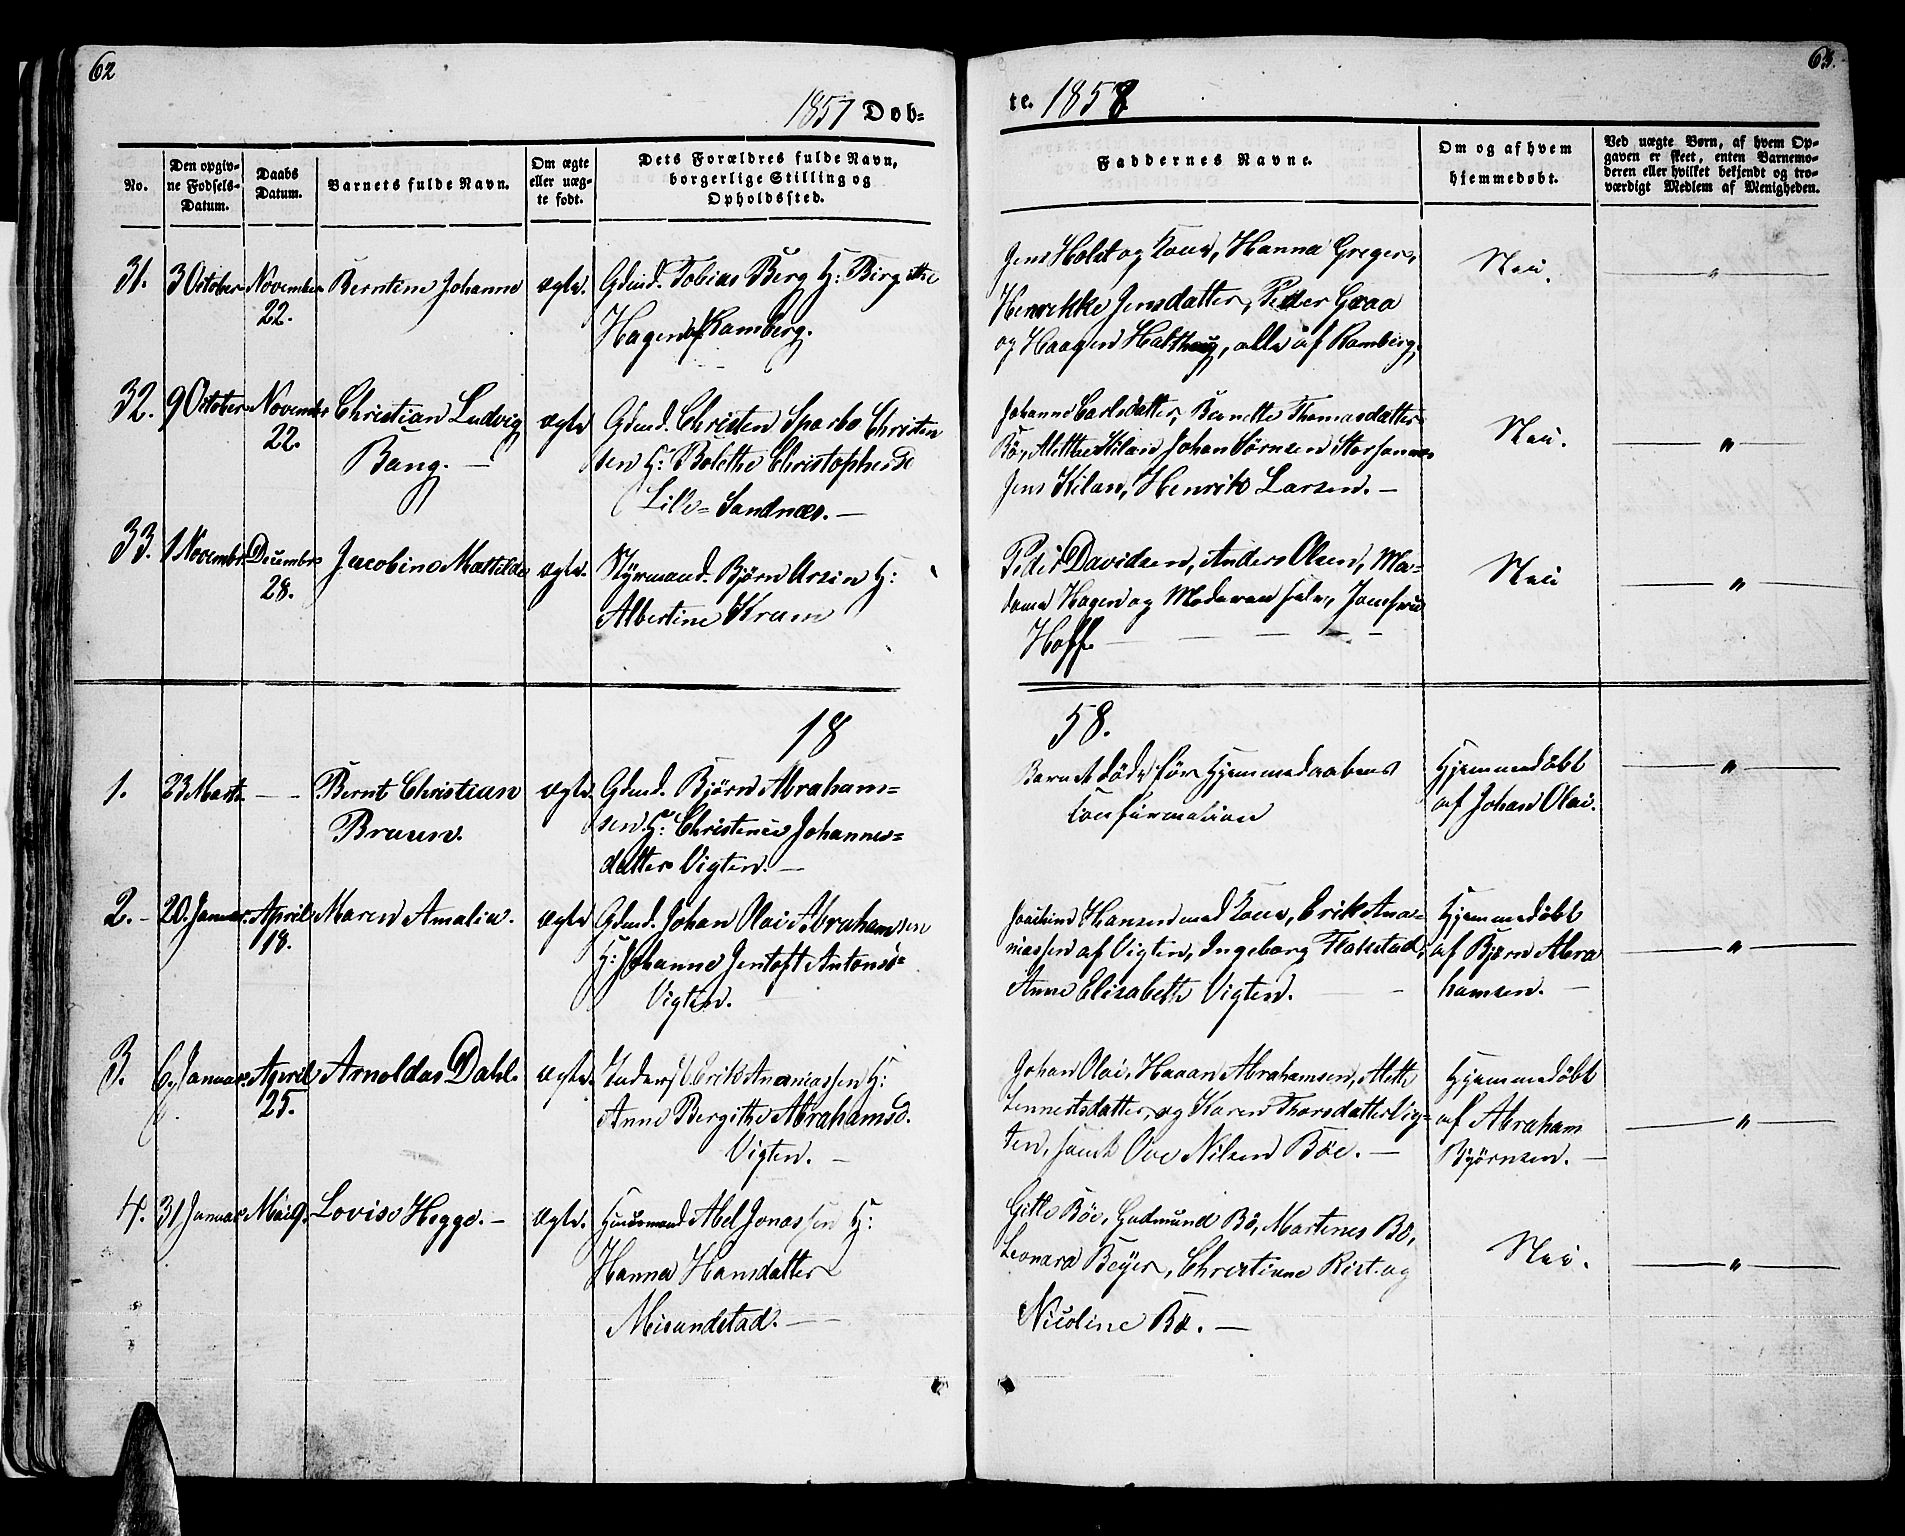 62
63.
1857 Døb-
te. 1858
No.
Den opgiv-
ne Fødsels-
Datum.
Daabs
Datum.
Barnets fulde Navn.
Om ægte
eller uæg-
te født.
Dets Forældres fulde Navn,
borgerlige Stilling og
Opholdssted.
Faddernes Navne.
Om og af hvem
hjemmedøbt.
Ved uægte Børn, af hvem Op-
gaven er skeet, enten Barnemo-
deren eller hvilket bekjendt og tro-
værdigt Medlem af Menigheden.
31. 3 October November Berntine Johanne ægte. Gdmd. Tobias Berg H: Birgithe
22.
Hagen af Ramberg.
Jens Holst og Kone, Hanna Greger,
Henrikke Jensdatter, Peder Graa
og Haagen Halthaug, alle af Ramberg,
Nei. "
32. 9 October November Christian Ludvig ægte Gdmd. Christen Sparbo Christen
22. Bang. — sen H: Bolethe Christophersd
Lille-Sandnæs. —
Johanne Carlsdatter, Banette Thomasdatter
Bö, Mette Kilan, Johan Sörnsen Storsandnæs
Jens Kilan, Henrik Larsen. —
Nei. "
33. 1 Novembr. Decembr. Jacobine Mathilde ægte. Styrmand. Bjørn Ursin H:
28.
Albertine Kram
Peder Davidsen, Anders Olsen, Ma-
dame Hagen og Madamen selv, Jomfrue
Hoff. —
Nei "
18 58.
1. 23 Marts — Bernt Christian ægte. Gdmd. Bjørn Abraham-
Bruun. sen H: Christine Johannes-
datter Vigten. —
Barnet døde før Hjemmedaabens
Confirmation
Hjemmedøbt
af Johan Olai.
"
2. 20. Januar. April Maren Amalia. ægte Gdmd. Johan Olai Abrahamsen
18. H: Johanne Jentoft Antonsd-
Vigten.
Joachim Hansen med Kone, Erik Ana-
niassen af Vigten, Ingeborg Flakstad,
Anne Elisabeth Vigten.
Hjemmedøbt
af Bjørn Abra
hamsen. —
"
3. 6. Januar April Arnoldus Dahl. ægte. Inderst Erik Ananiassen H:
25. Anne Bergithe Abrahamsd.
Vigten. —
Johan Olai, Haaan Abrahamsen, Mette
Lennertsdatter, og Karen Thorsdatter Vig-
ten, samt Ove Nilsen Böe. —
Hjemmedøbt
af Abraham
Bjørnsen. —
"
4. 31 Januar Mai 9. Lovise Hegge. — ægte. Huusmand Abel Jonassen H:
Hanna Hansdatter
Misundstad. —
Gitte Böe, Gudmund Bö, Martines Bö,
Leonard Beyer, Christiane Rist og
Nicoline Bö. —
Nei. "